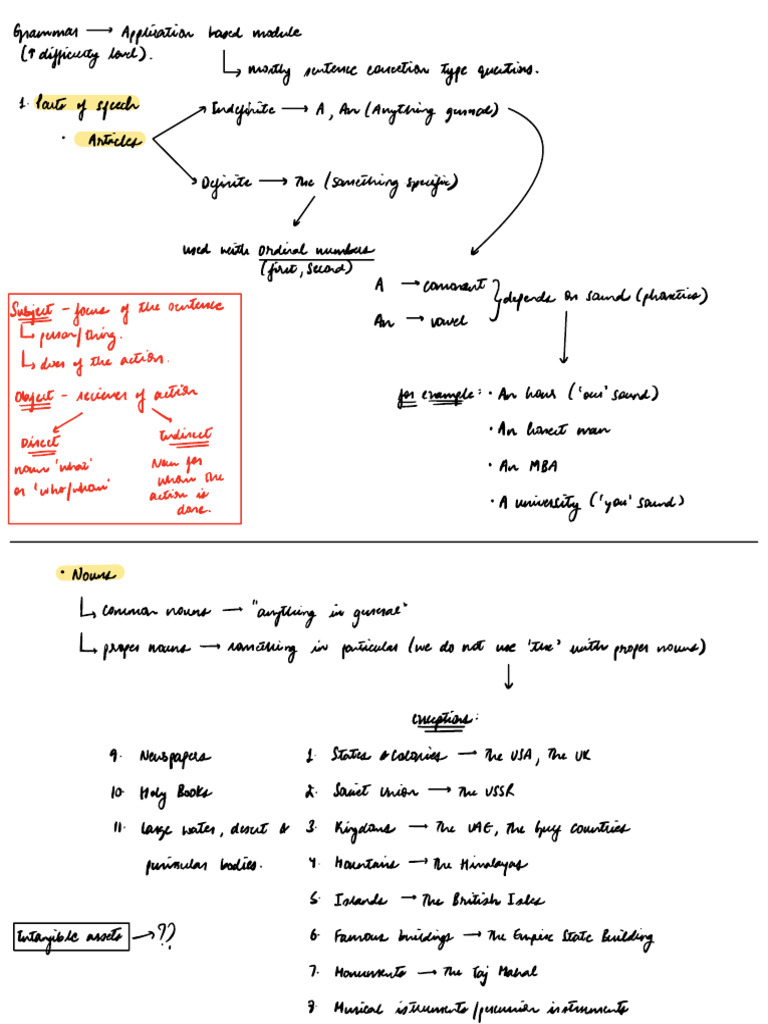 Grammar → Application based module
(↑ difficulty level).
↳ mostly sentence correction type questions.
1. Parts of speech
• Articles
Indefinite → A, An (Anything general)
Definite → The (something specific)
used with ordinal numbers
(first, second)
A → consonant
An → vowel
} depends on sound (phonetics)
for example: • An hour ('our' sound)
• An honest man
• An MBA
• A university ('you' sound)
Subject - focus of the sentence
↳ person/thing.
↳ doer of the action.
Object - reciever of action
Direct
noun 'what'
or 'who/whom'
Indirect
Noun for
whom the
action is
done.
• Nouns
↳ common nouns → "anything in general"
↳ proper nouns → something in particular (we do not use 'the' with proper nouns)
exceptions:
1. States & colonies → The USA, The UK
2. Soviet Union → The USSR
3. Kingdoms → The UAE, The Gulf countries
4. Mountains → The Himalayas
5. Islands → The British Isles
6. Famous buildings → The Empire State Building
7. Monuments → The Taj Mahal
8. Musical instruments/percussion instruments
9. Newspapers
10. Holy Books
11. Large water, desert &
peninsular bodies.
Intangible assets → ??